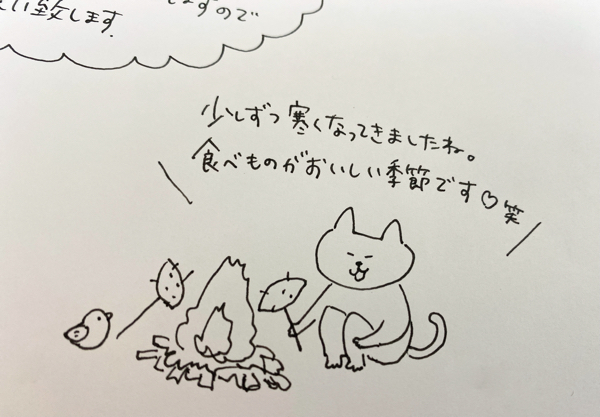 い致します。
しますので
少しずつ寒くなってきましたね。
食べものがおいしい季節です♡笑